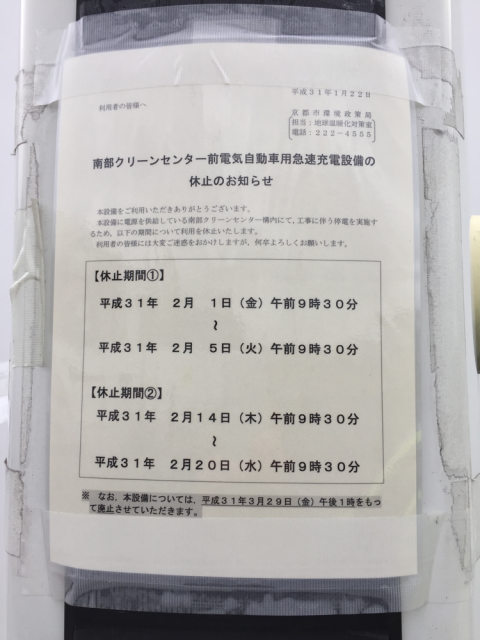 平成３１年１月２２日
利用者の皆様へ
京都市環境政策局
担当：地球温暖化対策室
電話：２２２-４５５５
南部クリーンセンター前電気自動車用急速充電設備の
休止のお知らせ
本設備をご利用いただきありがとうございます。
本設備に電源を供給している南部クリーンセンター構内にて、工事に伴う停電を実施す
るため、以下の期間について利用を休止いたします。
利用者の皆様には大変ご迷惑をおかけしますが、何卒よろしくお願いします。
【休止期間①】
平成３１年　２月　１日（金）午前９時３０分
～
平成３１年　２月　５日（火）午前９時３０分
【休止期間②】
平成３１年　２月１４日（木）午前９時３０分
～
平成３１年　２月２０日（水）午前９時３０分
※　なお、本設備については、平成３１年３月２９日（金）午後１時をもっ
て廃止させていただきます。